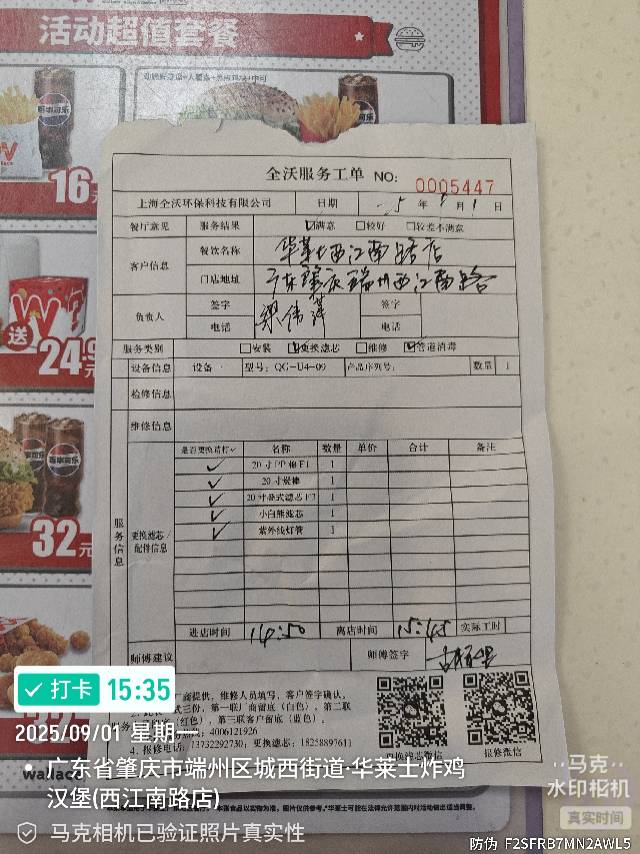 活动超值套餐
16元
送
24.9
32元
全沃服务工单 NO: 0005447
上海全沃环保科技有限公司 日期 25 年 9 月 1 日
餐厅意见 服务结果 ☑满意 □较好 □较差不满意
客户信息 餐饮名称 华莱士西江南路店
门店地址 广东肇庆端州西江南路
负责人 签字 梁伟萍 签字
电话 电话
服务类别 □安装 ☑更换滤芯 □维修 ☑管道消毒
设备信息 设备 型号: QG-U4-09 产品序列号: 数量 1
检修信息
维修信息
服务信息 更换滤芯/配件信息
是否更换请打✓ 名称 数量 单价 合计 备注
✓ 20寸PP棉F1 1
✓ 20寸炭棒 1
✓ 20寸卷式滤芯F3 1
✓ 小白熊滤芯 1
✓ 紫外线灯管 1
进店时间 14:50 离店时间 15:45 实际工时
师傅建议 师傅签字
厂商提供, 维修人员填写, 客户签字确认,
式三份, 第一联厂商留底(白色), 第二联
(红色), 第三联客户留底(蓝色),
4006121926
4. 报修电话: 13732292730; 更换滤芯: 18258896761
更换滤芯微信 报修微信
✓打卡 15:35
2025/09/01 星期一
广东省肇庆市端州区城西街道·华莱士炸鸡
汉堡(西江南路店)
wallace
马克相机已验证照片真实性
马克
水印相机
真实时间
防伪 F2SFRB7MN2AWL5